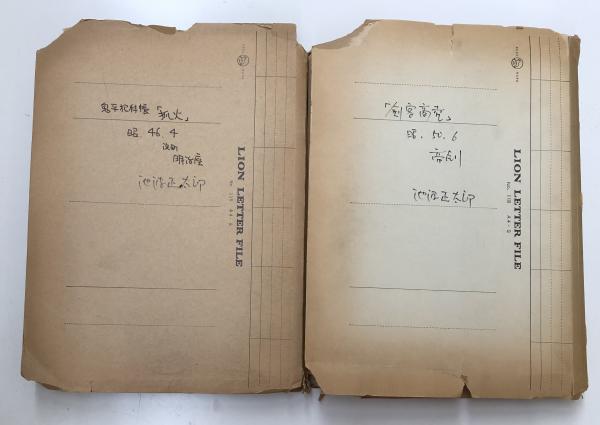 鬼平犯科帳「狐火」
昭. 46. 4
於
明治座
池波正太郎
LION LETTER FILE
No. 118 A4-S
「剣客商売」
昭. 50. 6
帝劇
池波正太郎
LION LETTER FILE
No. 118 A4-S